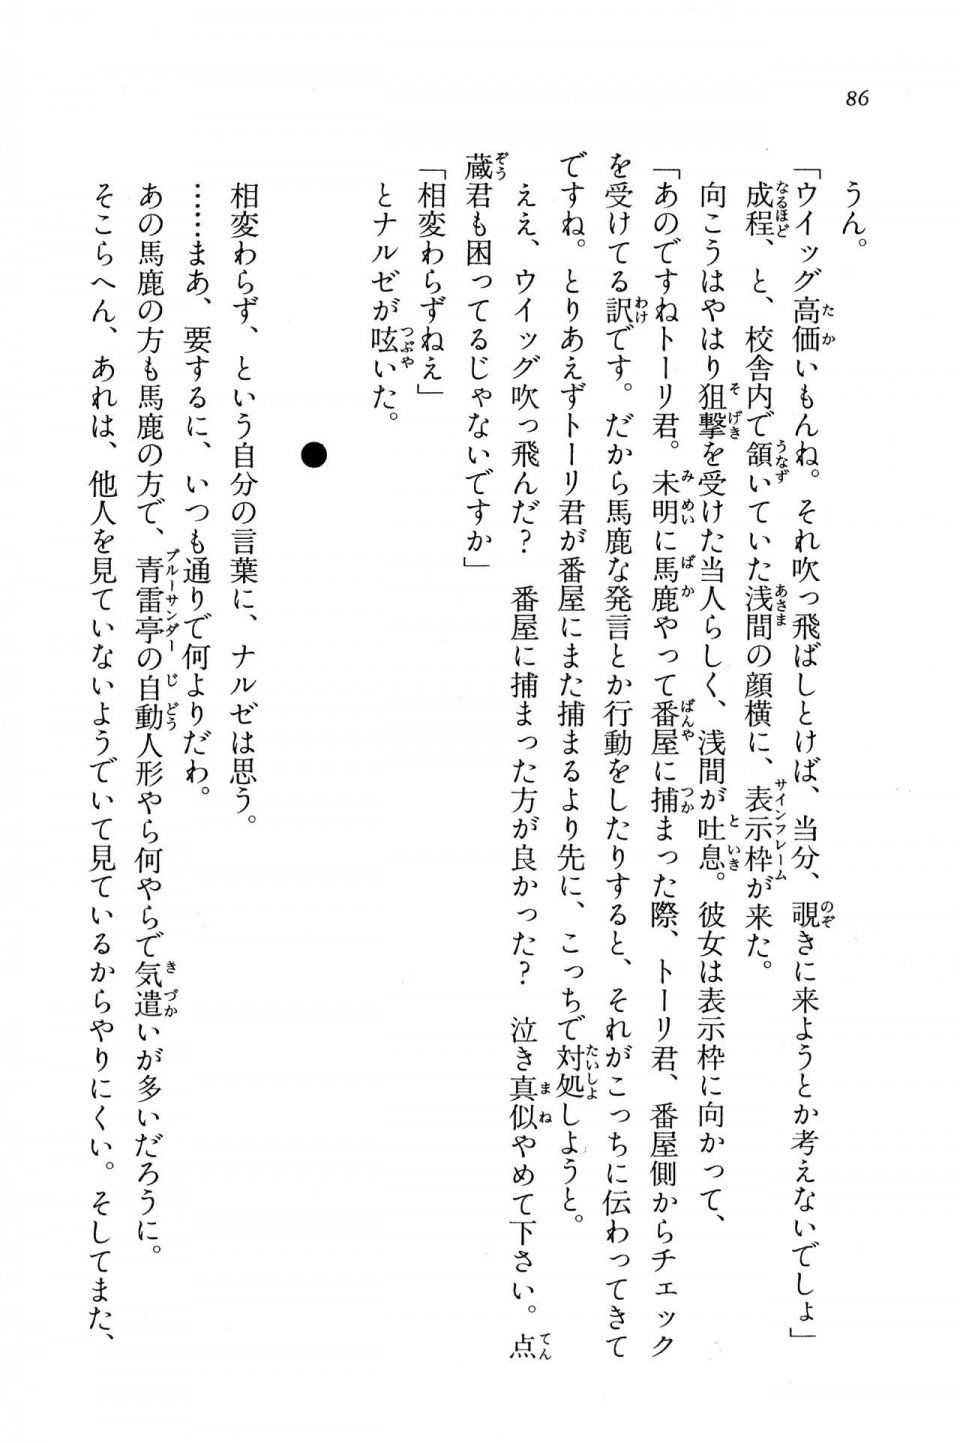 86
うん。
「ウイッグ高価いもんね。それ吹っ飛ばしとけば、当分、覗きに来ようとか考えないでしょ」
成程、と、校舎内で頷いていた浅間の顔横に、表示枠が来た。
向こうはやはり狙撃を受けた当人らしく、浅間が吐息。彼女は表示枠に向かって、
「あのですねトーリ君。未明に馬鹿やって番屋に捕まった際、トーリ君、番屋側からチェック
を受けてる訳です。だから馬鹿な発言とか行動をしたりすると、それがこっちに伝わってきて
ですね。とりあえずトーリ君が番屋にまた捕まるより先に、こっちで対処しようと。
ええ、ウイッグ吹っ飛んだ？　番屋に捕まった方が良かった？　泣き真似やめて下さい。点
蔵君も困ってるじゃないですか」
「相変わらずねえ」
とナルゼが呟いた。
●
相変わらず、という自分の言葉に、ナルゼは思う。
……まあ、要するに、いつも通りで何よりだわ。
あの馬鹿の方も馬鹿の方で、青雷亭の自動人形やら何やらで気遣いが多いだろうに。
そこらへん、あれは、他人を見ていないようでいて見ているからやりにくい。そしてまた、